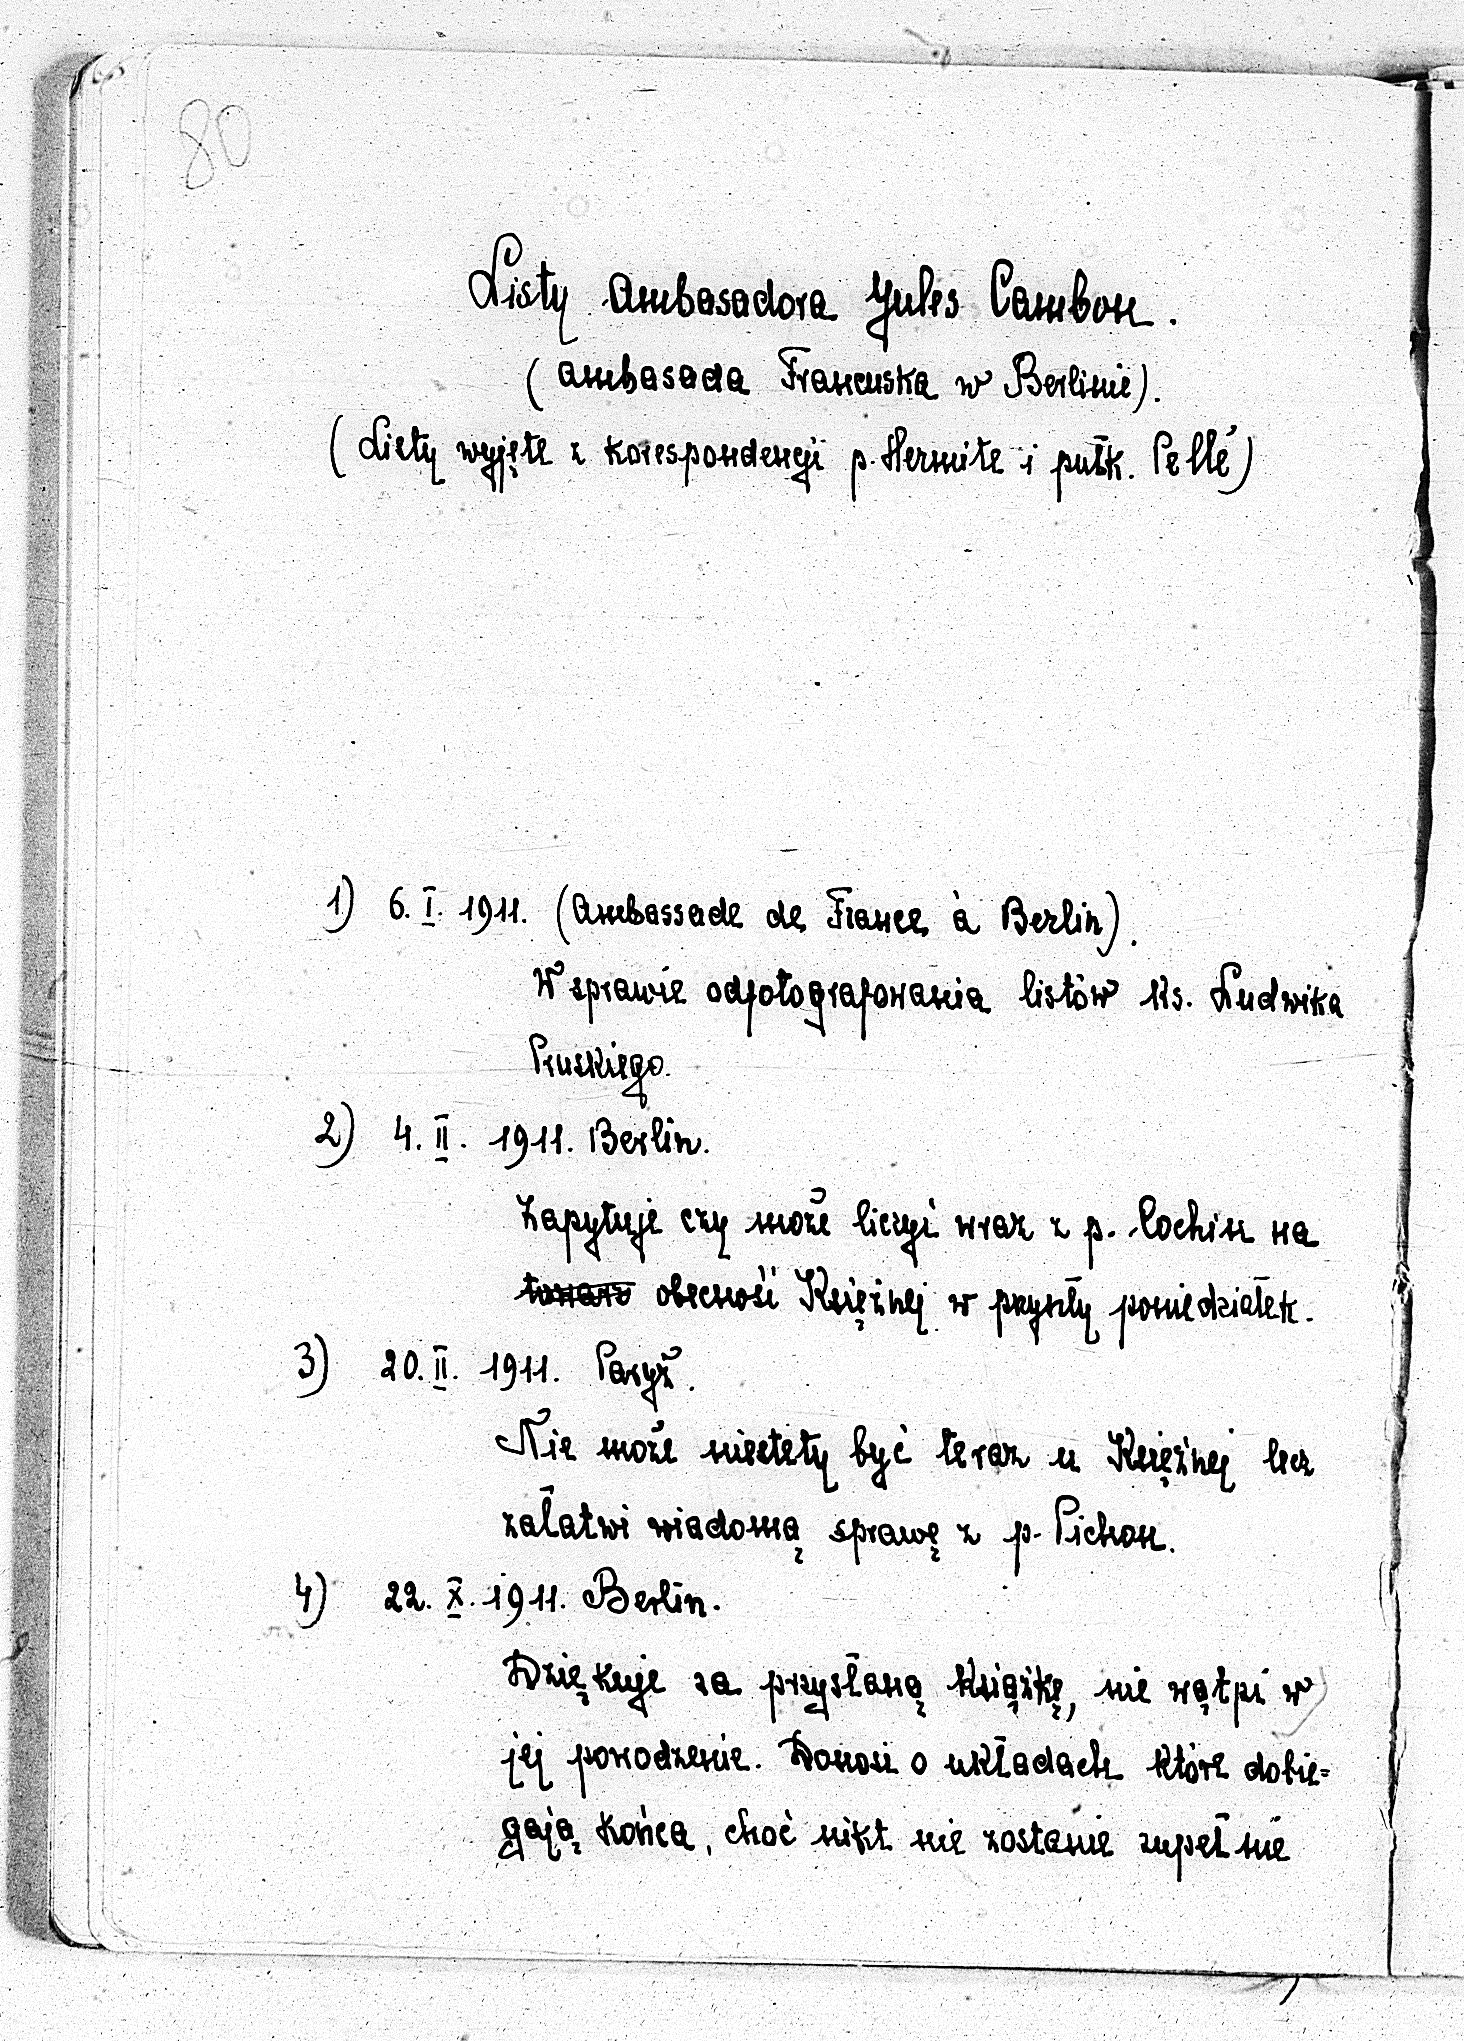 80
Listy Ambasadora Jules Cambon.
(Ambasada Francuska w Berlinie).
(Listy wyjęte z korespondencji p. Hermite i pułk. Pellé)
1) 6. I. 1911. (Ambassade de France à Berlin).
W sprawie odfotografowania listów Ks. Ludwika
Pruskiego.
2) 4. II. 1911. Berlin.
Zapytuje czy może liczyć wraz z p. Cochin na
obecność Księżnej w przyszły poniedziałek.
3) 20. II. 1911. Paryż.
Nie może niestety być teraz u Księżnej lecz
załatwi wiadomą sprawę z p. Pichon.
4) 22. X. 1911. Berlin.
Dziękuje za przysłaną książkę, nie wątpi w
jej powodzenie. Donosi o układach które dobie=
gają końca, choć nikt nie zostanie zupełnie